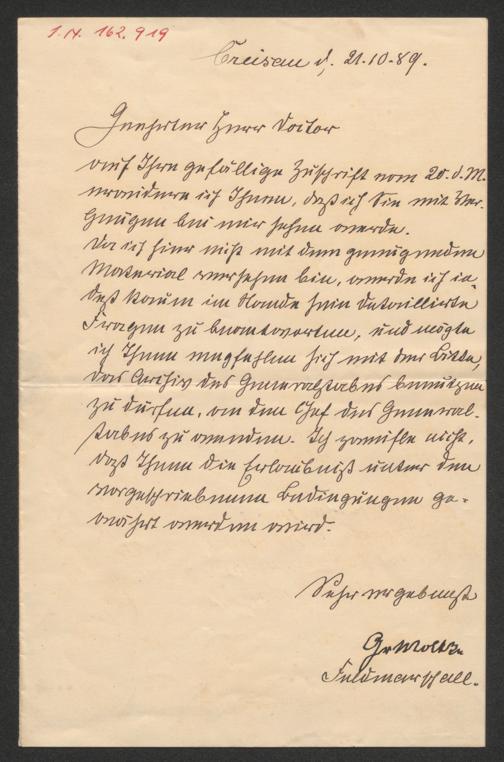 I.N. 162.919
Creisau d. 21.10.89.
Geehrter Herr Doctor
auf Ihre gefällige Zuschrift vom 20. d. M.
erwidere ich Ihnen, daß ich Sie mit Ver-
gnügen bei mir sehen werde.
Da ich hier nicht mit dem genügenden
Material versehen bin, werde ich in-
deß kaum im Stande sein detaillierte
Fragen zu beantworten, und möchte
ich Ihnen empfehlen sich mit der Bitte,
das Archiv des Generalstabes benutzen
zu dürfen, an den Chef des General-
stabes zu wenden. Ich zweifle nicht,
daß Ihnen die Erlaubniß unter den
vorgeschriebenen Bedingungen ge-
währt werden wird.
Sehr ergebenst
Gr Moltke
Feldmarschall.